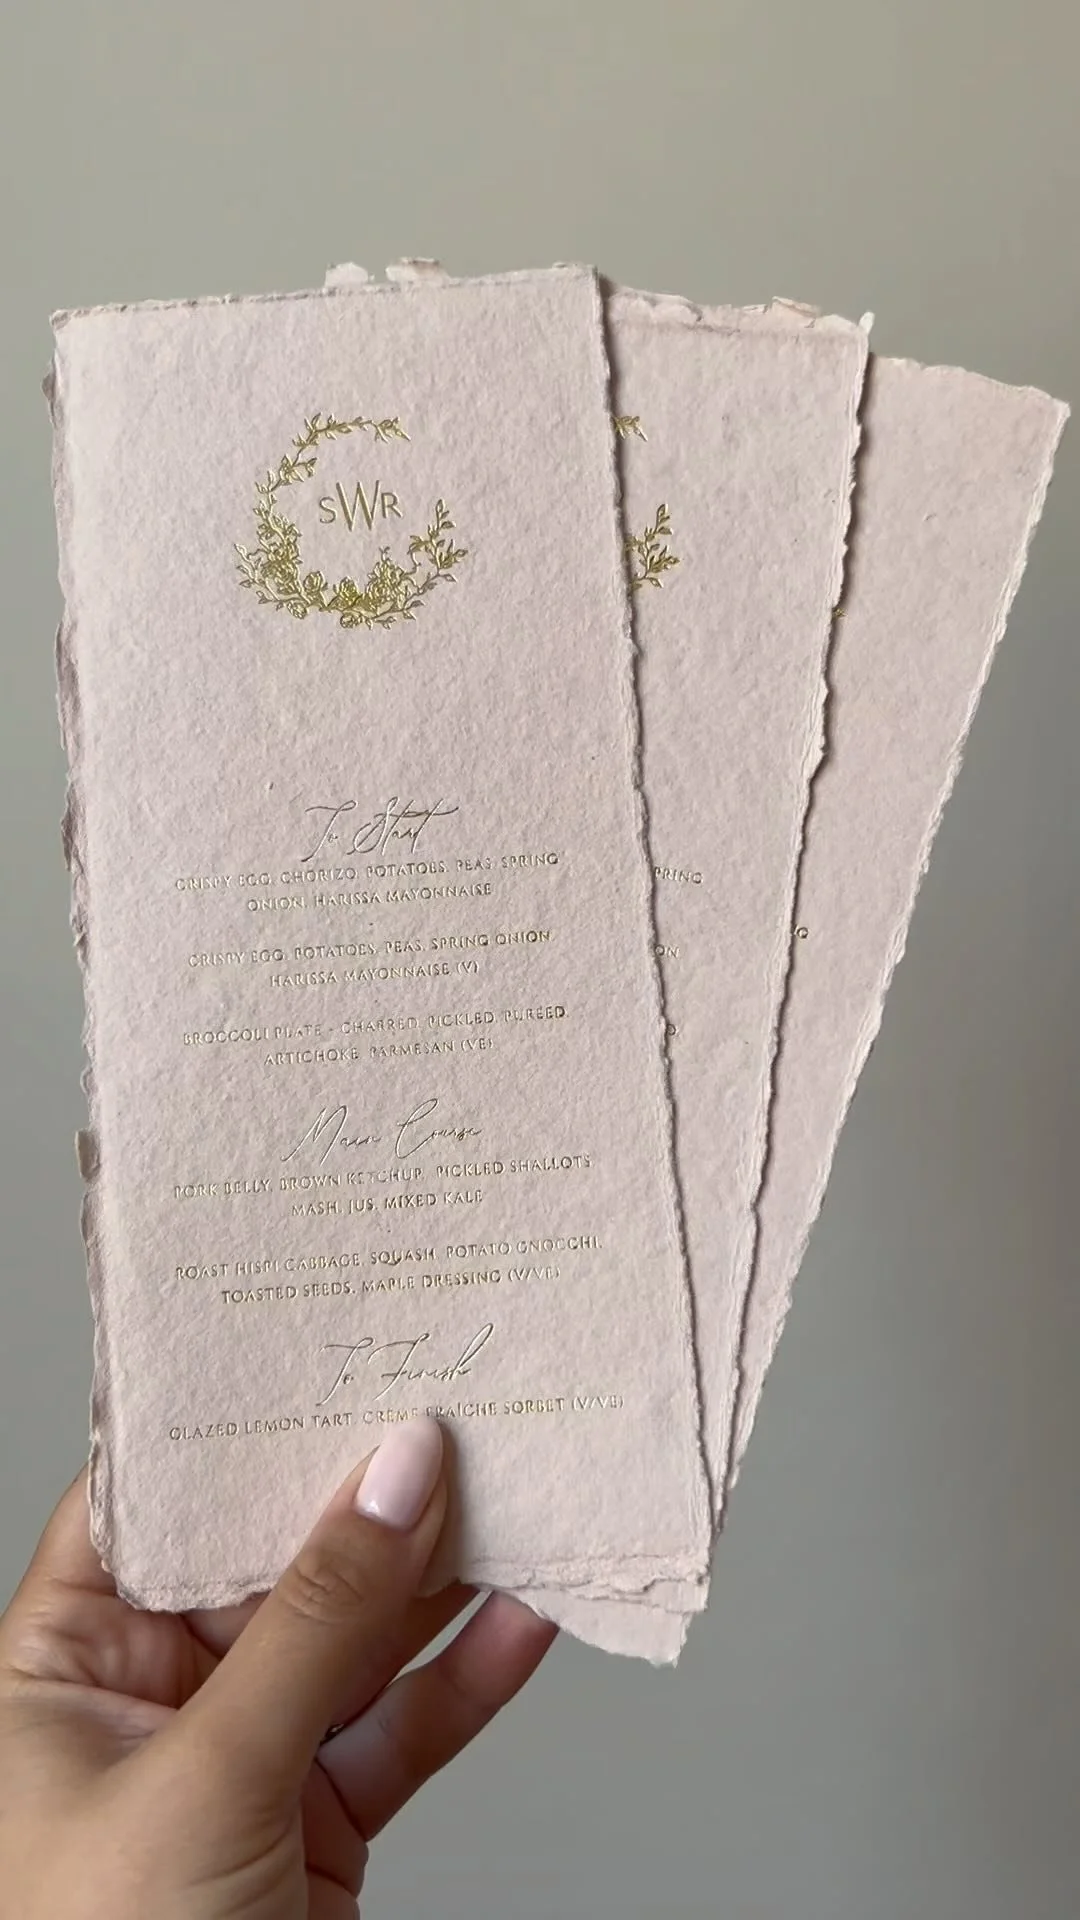 SWR
To Start
CRISPY EGG, CHORIZO, POTATOES, PEAS, SPRING
ONION, HARISSA MAYONNAISE
CRISPY EGG, POTATOES, PEAS, SPRING ONION,
HARISSA MAYONNAISE (V)
BROCCOLI PLATE - CHARRED, PICKLED, PUREED,
ARTICHOKE, PARMESAN (VE)
Main Course
PORK BELLY, BROWN KETCHUP, PICKLED SHALLOTS
MASH, JUS, MIXED KALE
ROAST HISPI CABBAGE, SQUASH, POTATO GNOCCHI,
TOASTED SEEDS, MAPLE DRESSING (V/VE)
To Finish
GLAZED LEMON TART, CRÈME FRAÎCHE SORBET (V/VE)
PRING
ON
D,
G